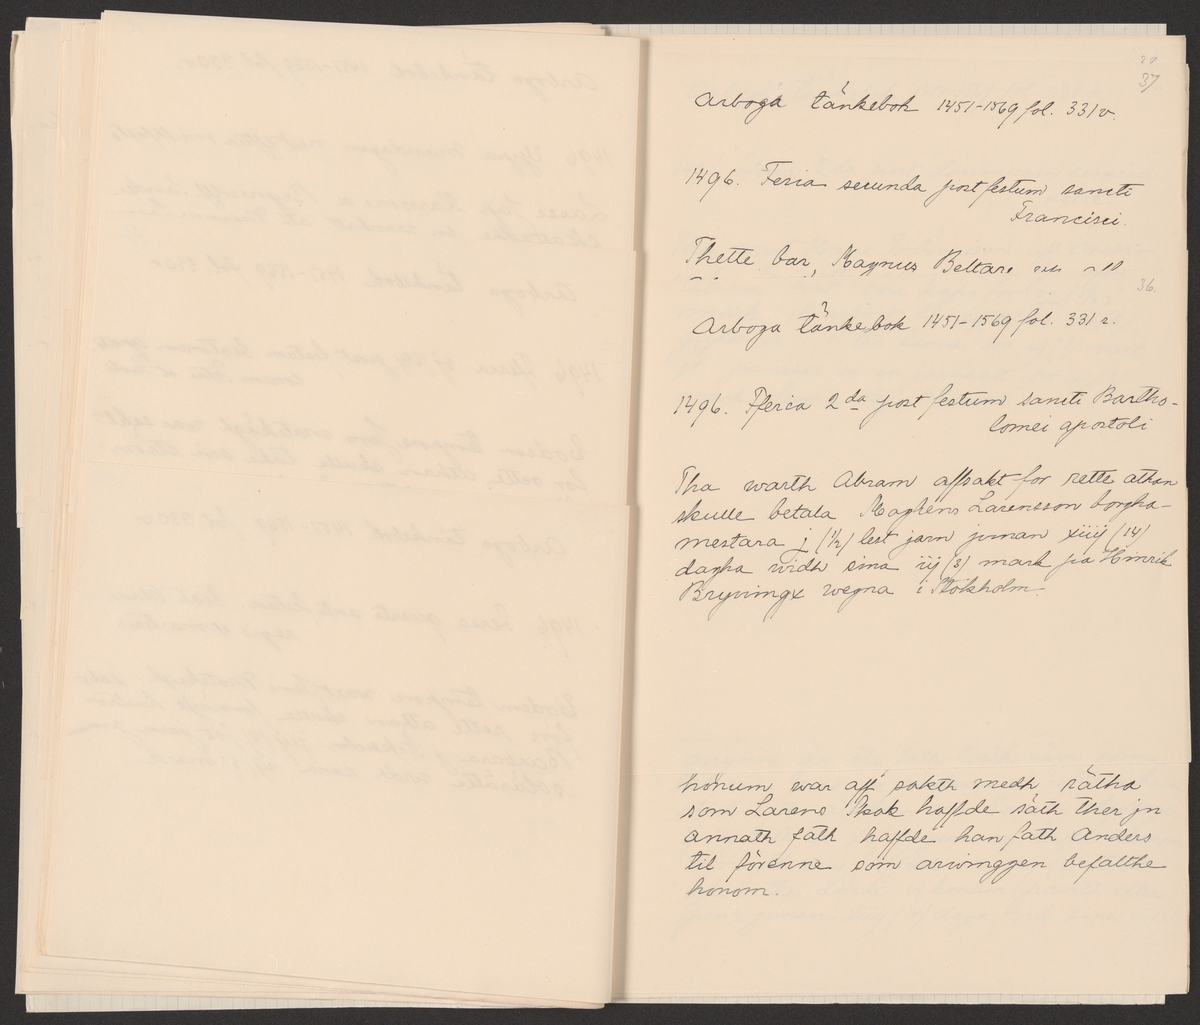 37
Arboga tänkebok 1451-1569 fol. 331 v.
1496. Feria secunda post festum sancti
Francisci.
Thette bar, Magnus Beltare
36.
Arboga tänkebok 1451-1569 fol. 331 r.
1496. Fferia 2da post festum sancti Bartho-
lomei apostoli
Tha warth Abram affsakt for rette athan
skulle betala Maghens Larensson borgha-
mestara j (1/2) lest jarn jnnan xiiij (14)
dagha widh sina iij (3) mark pa Hinrik
wegna i Stokholm.
honum war aff sakth medh rätha
som Larens Skok haffde säth ther jn
annath fath haffde han fath Anders
til förenne som arwinggen befalthe
honom.